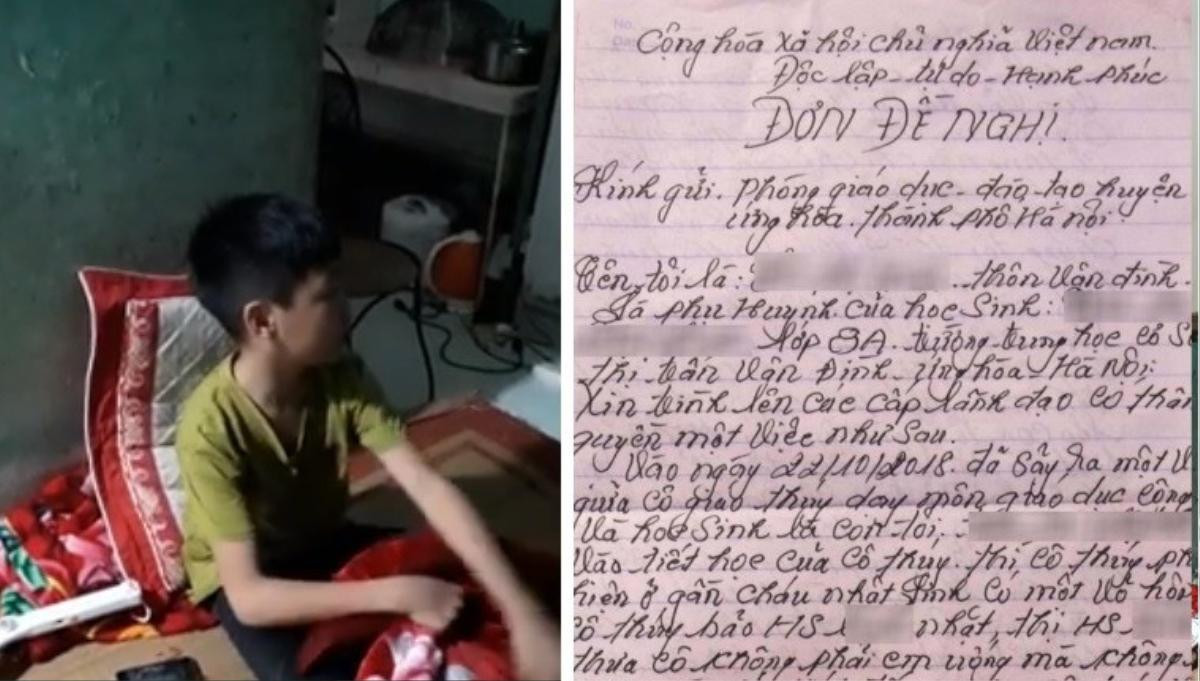 Cộng hóa xã hội chủ nghĩa Việt nam.
Độc lập - tự do - Hạnh phúc
ĐƠN ĐỀ NGHỊ.
Kính gửi. Phòng giáo dục - đào tạo huyện
ứng hòa. thành phố Hà nội
Tên tôi là: thôn Vân đình
Là phụ Huynh của học Sinh:
Lớp 8A. trường trung học cơ S
thị trấn Vân Đình - ứng hòa - HÀ NỘI
Xin trình lên các cấp lãnh đạo có thẩ
quyền một việc như sau.
Vào ngày 22/10/2018. đã sảy ra một v
giữa cô giáo thúy dạy môn giáo dục công
Và học Sinh là con tôi,
Vào tiết học của cô thúy. thì cô thúy ph
hiện ở gần cháu nhật Linh có một vỏ hôn
cô thúy bảo HS nhặt, thì HS
thưa cô không phải em uống mà không